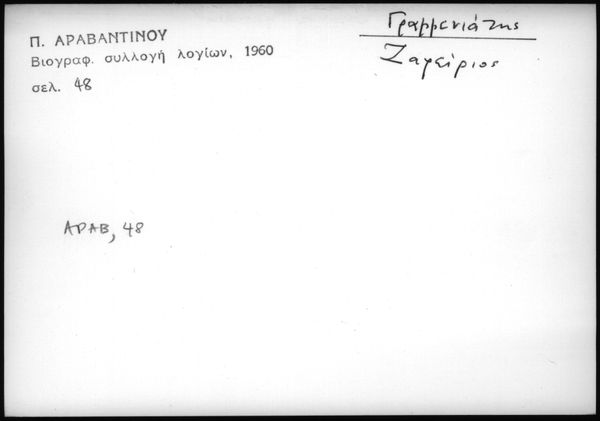 Π. ΑΡΑΒΑΝΤΙΝΟΥ
Βιογραφ. συλλογή λογίων, 1960
σελ. 48
Γραμμενιάτης
Ζαφείριος
ΑΡΑΒ, 48